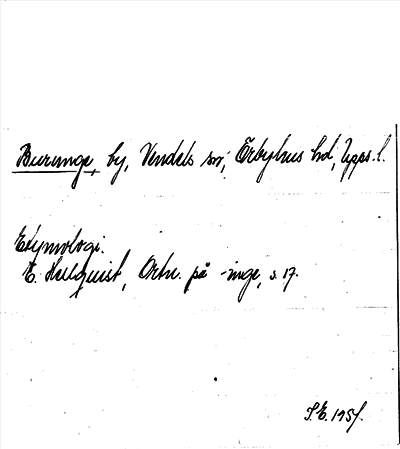 Burunge, by, Vendels sn, Örbyhus hd, Upps. l.
Etymologi.
E. Hellquist, Ortn. på -inge, s. 17.
S.E. 1951.